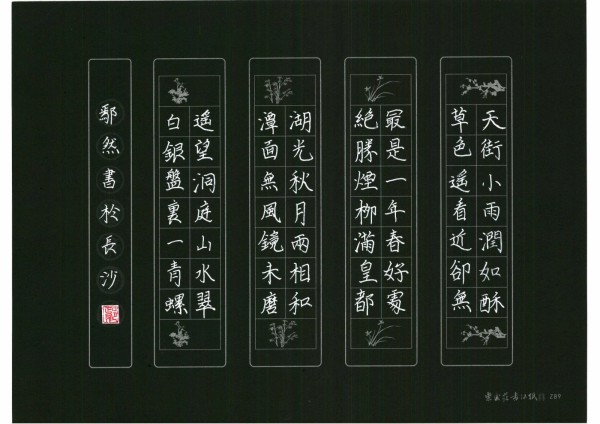 天街小雨潤如酥
草色遥看近卻無
最是一年春好處
絶勝煙柳滿皇都
湖光秋月兩相和
潭面無風鏡未磨
遥望洞庭山水翠
白銀盤裏一青螺
鄢然書於長沙